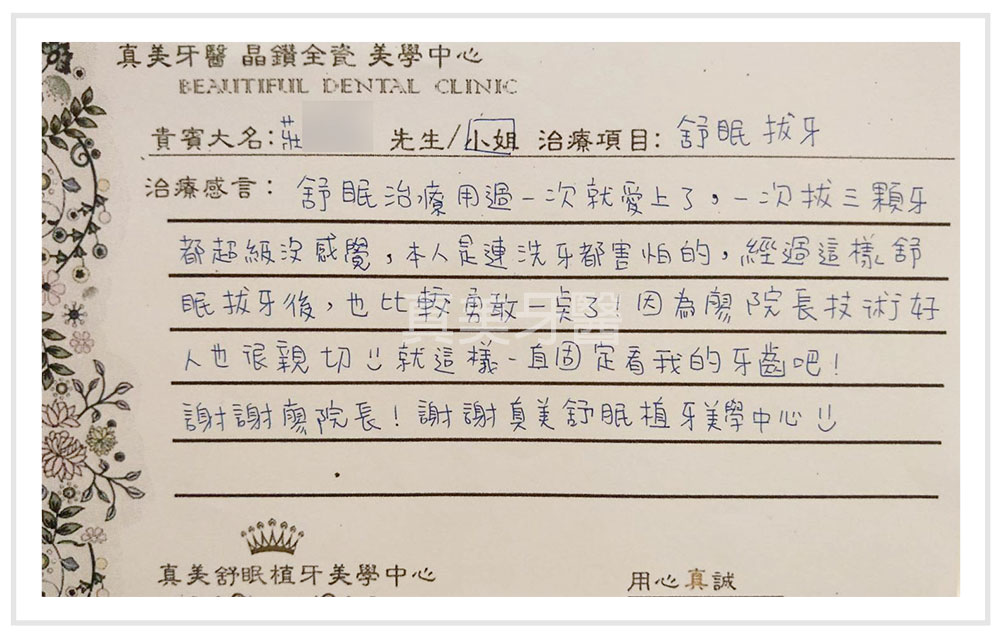 真美牙醫 晶鑽全瓷 美學中心
BEAUTIFUL DENTAL CLINIC
貴賓大名:莊 先生/小姐 治療項目: 舒眠拔牙
治療感言: 舒眠治療用過一次就愛上了,一次拔三顆牙
都超級沒感覺,本人是連洗牙都害怕的,經過這樣舒
眠拔牙後,也比較勇敢一點了!因為廖院長技術好
人也很親切就這樣一直固定看我的牙齒吧!
謝謝廖院長!謝謝真美舒眠植牙美學中心
真美牙醫
真美舒眠植牙美學中心 用心真誠